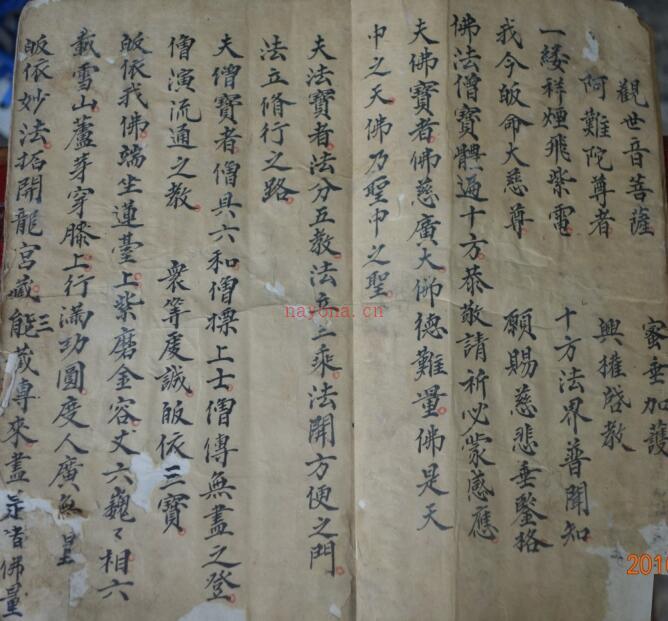 觀世音菩薩 密垂加護
阿難陀尊者 興權啓教
一縷祥煙飛紫電 十方法界普聞知
我今皈命大慈尊 願賜慈悲垂鑒格
佛法僧寶體遍十方恭敬請祈必蒙感應
夫佛寶者佛慈廣大佛德難量佛是天
中之天佛乃聖中之聖
夫法寶者法分五教法立二乘法開方便之門
法立脩行之路
夫僧寶者僧具六和僧摽上士僧傳無盡之登
僧演流通之教 衆等虔誠皈依三寶
皈依我佛端坐蓮臺上紫磨金容丈六巍々相六
載雪山蘆芽穿膝上行滿功圓度人廣無量
皈依妙法拈開龍宮藏三藏傳來盡是佛量
nayona.cn
201